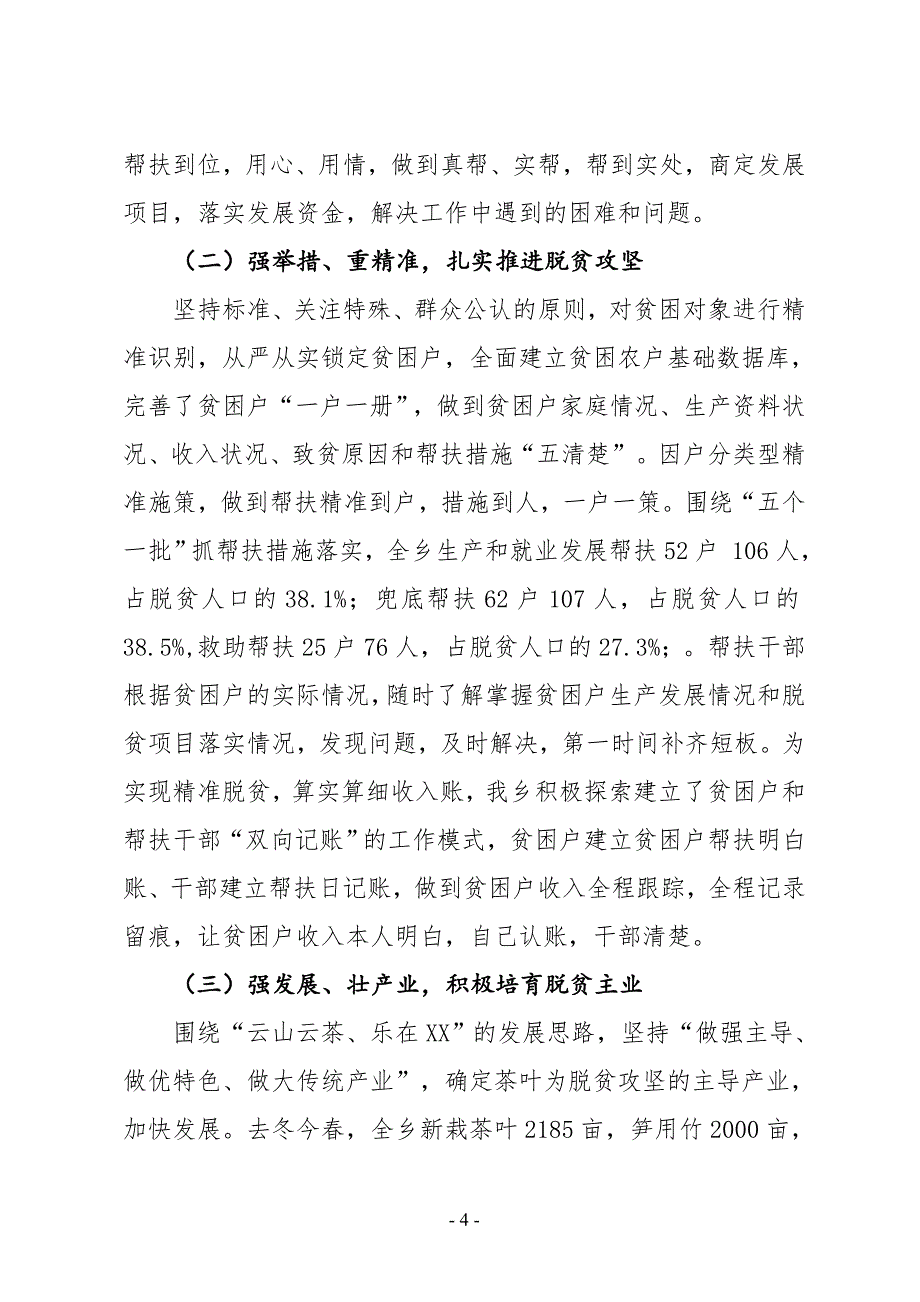 帮扶到位，用心、用情，做到真帮、实帮，帮到实处，商定发展
项目，落实发展资金，解决工作中遇到的困难和问题。
（二）强举措、重精准，扎实推进脱贫攻坚
坚持标准、关注特殊、群众公认的原则，对贫困对象进行精
准识别，从严从实锁定贫困户，全面建立贫困农户基础数据库，
完善了贫困户“一户一册”，做到贫困户家庭情况、生产资料状
况、收入状况、致贫原因和帮扶措施“五清楚”。因户分类型精
准施策，做到帮扶精准到户，措施到人，一户一策。围绕“五个
一批”抓帮扶措施落实，全乡生产和就业发展帮扶52户 106人，
占脱贫人口的38.1%；兜底帮扶62户107人，占脱贫人口的
38.5%,救助帮扶25户76人，占脱贫人口的27.3%；。帮扶干部
根据贫困户的实际情况,随时了解掌握贫困户生产发展情况和脱
贫项目落实情况，发现问题，及时解决，第一时间补齐短板。为
实现精准脱贫，算实算细收入账，我乡积极探索建立了贫困户和
帮扶干部“双向记账”的工作模式，贫困户建立贫困户帮扶明白
账、干部建立帮扶日记账，做到贫困户收入全程跟踪，全程记录
留痕，让贫困户收入本人明白，自己认账，干部清楚。
（三）强发展、壮产业，积极培育脱贫主业
围绕“云山云茶、乐在XX”的发展思路，坚持“做强主导、
做优特色、做大传统产业”，确定茶叶为脱贫攻坚的主导产业，
加快发展。去冬今春，全乡新栽茶叶2185亩，笋用竹2000亩，
- 4 -